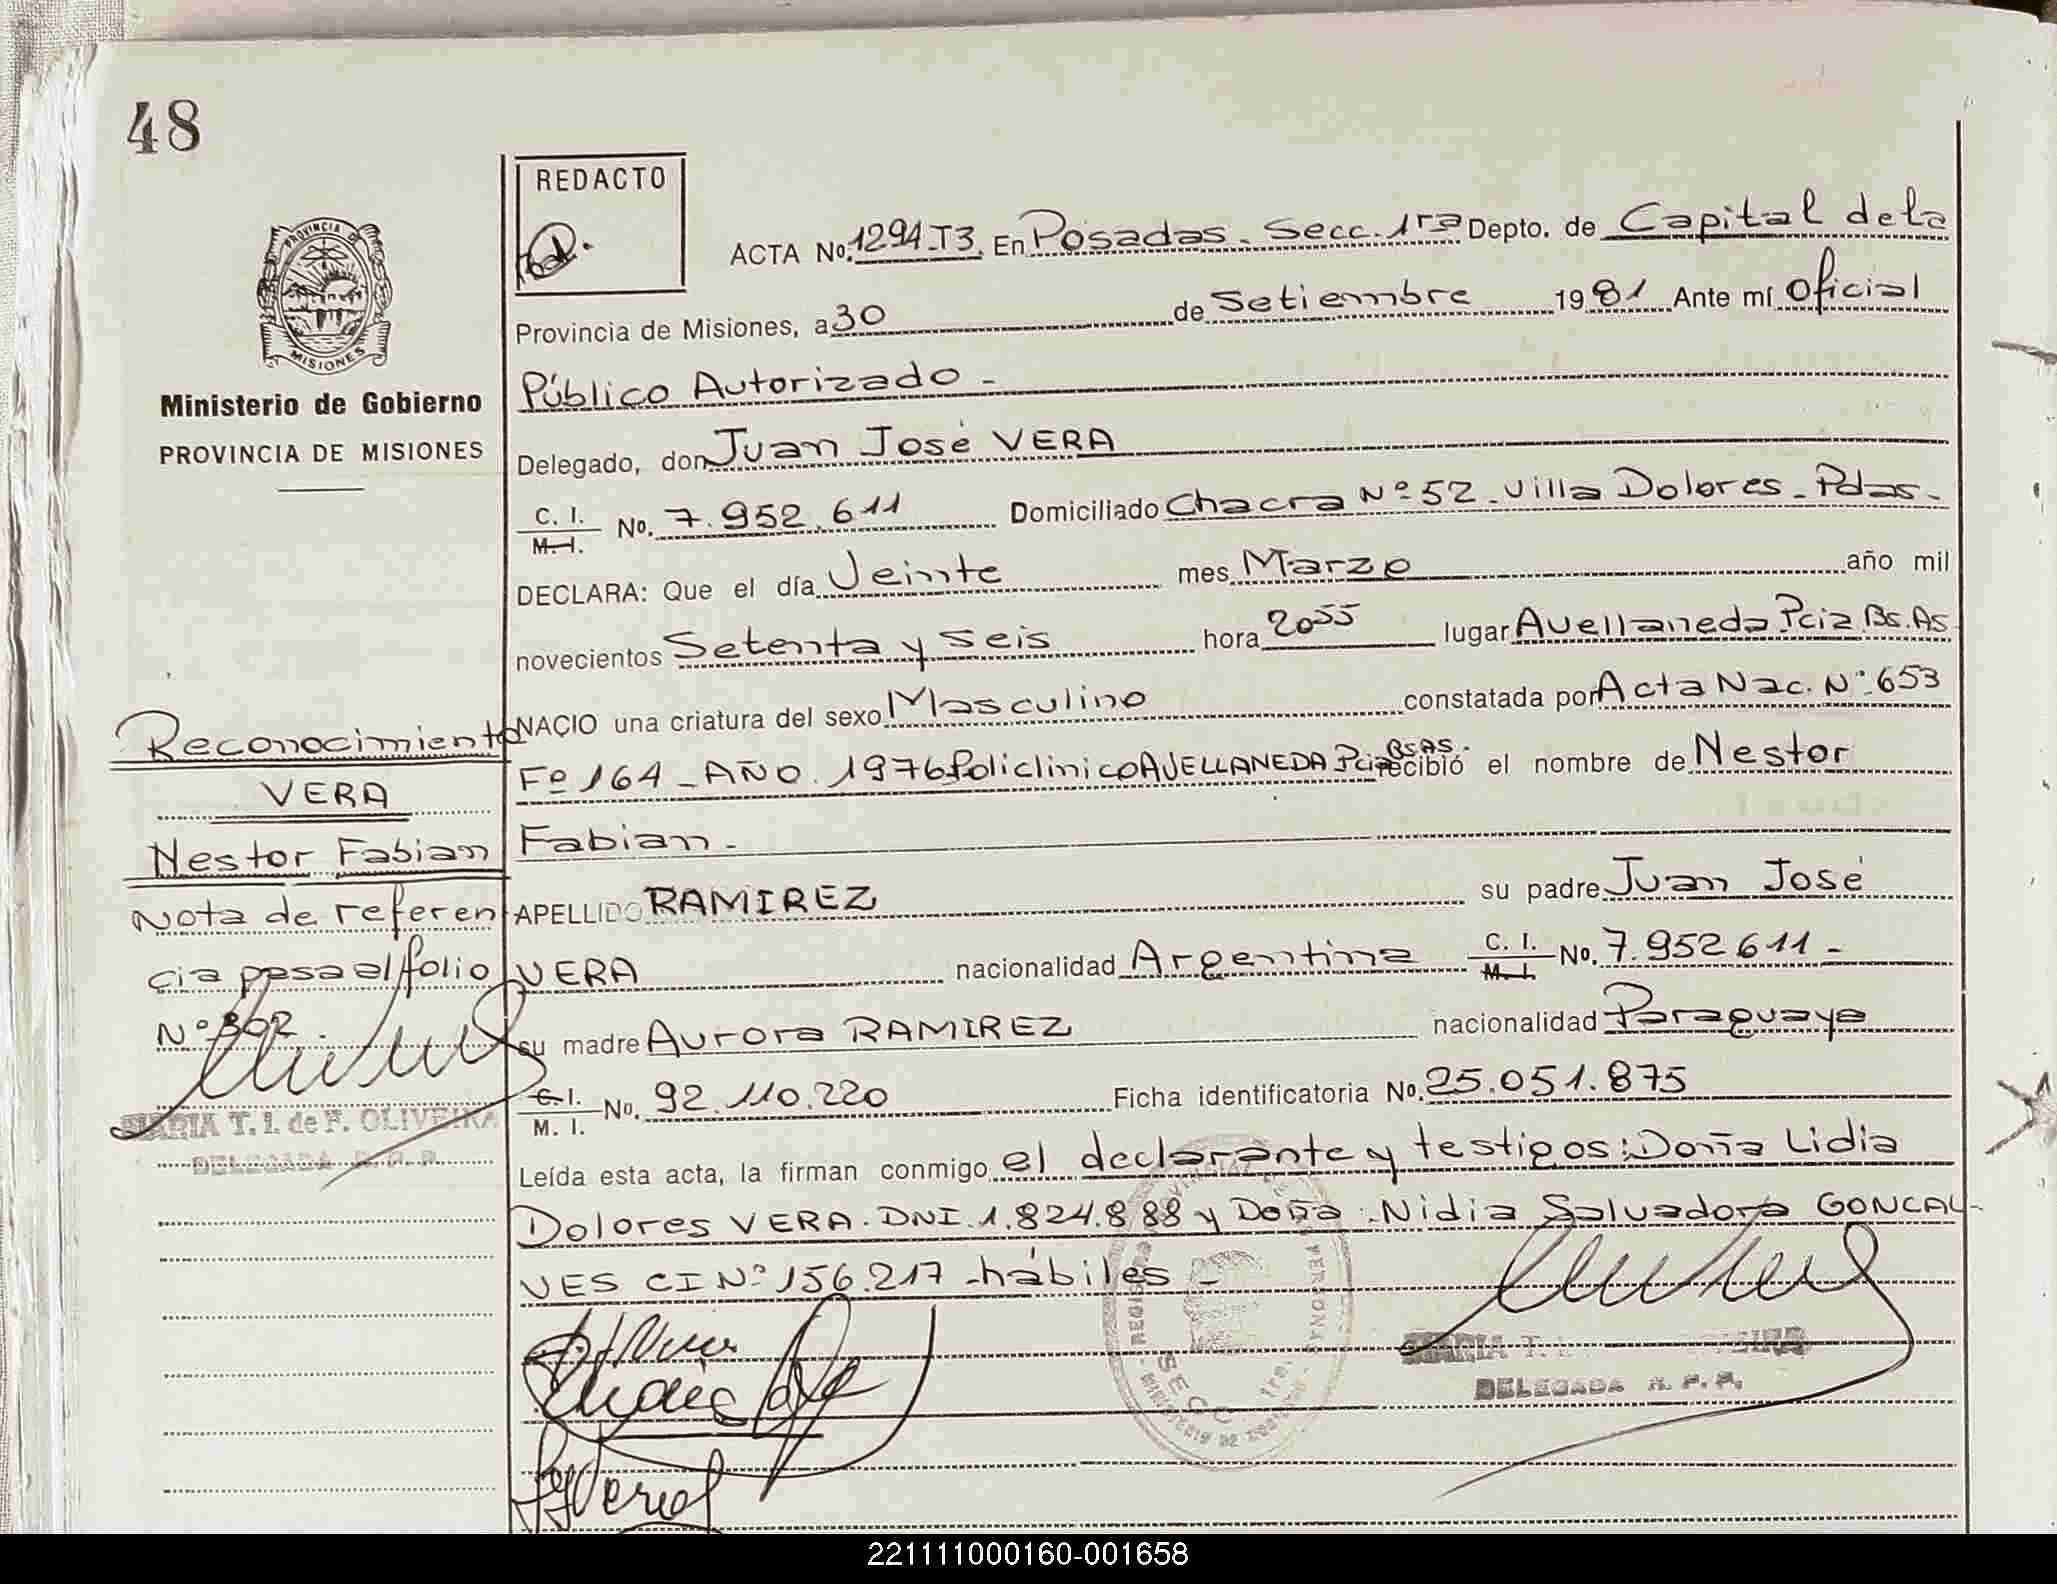 48
REDACTO
ACTA No. 1294-T3. En Posadas - Secc. 1ra Depto. de Capital de la
Provincia de Misiones, a 30 de Setiembre 1981 Ante mí Oficial
Público Autorizado -
Delegado, don Juan José VERA
C. I.
M. I. No. 7.952.611 Domiciliado Chacra Nº 52 - Villa Dolores - Pdas -
DECLARA: Que el día Veinte mes Marzo año mil
novecientos Setenta y seis hora 20 55 lugar Avellaneda Pcia Bs. As
NACIO una criatura del sexo Masculino constatada por Acta Nac. Nº 653
Fº 164 - AÑO. 1976 Policlinico AVELLANEDA Pcia Bs As. recibió el nombre de Nestor
Fabian -
APELLIDO RAMIREZ su padre Juan José
VERA nacionalidad Argentina C. I.
M. I. No. 7.952611 -
su madre Aurora RAMIREZ nacionalidad Paraguaya
C. I.
M. I. No. 92.110.220 Ficha identificatoria No. 25.051.875
Leída esta acta, la firman conmigo el declarante y testigos: Doña Lidia
Dolores VERA. DNI. 1.824.888 y Doña Nidia Salvadora GONCAL-
VES CI Nº 156.217 - hábiles -
PROVINCIA DE
MISIONES
Ministerio de Gobierno
PROVINCIA DE MISIONES
Reconocimiento
VERA
Nestor Fabian
Nota de referen
cia pasa al folio
Nº 302.
MARIA T. I. de F. OLIVEIRA
DELEGADA R. P. P.
SECC
MARIA T.
DELEGADA R. P. P.
221111000160-001658